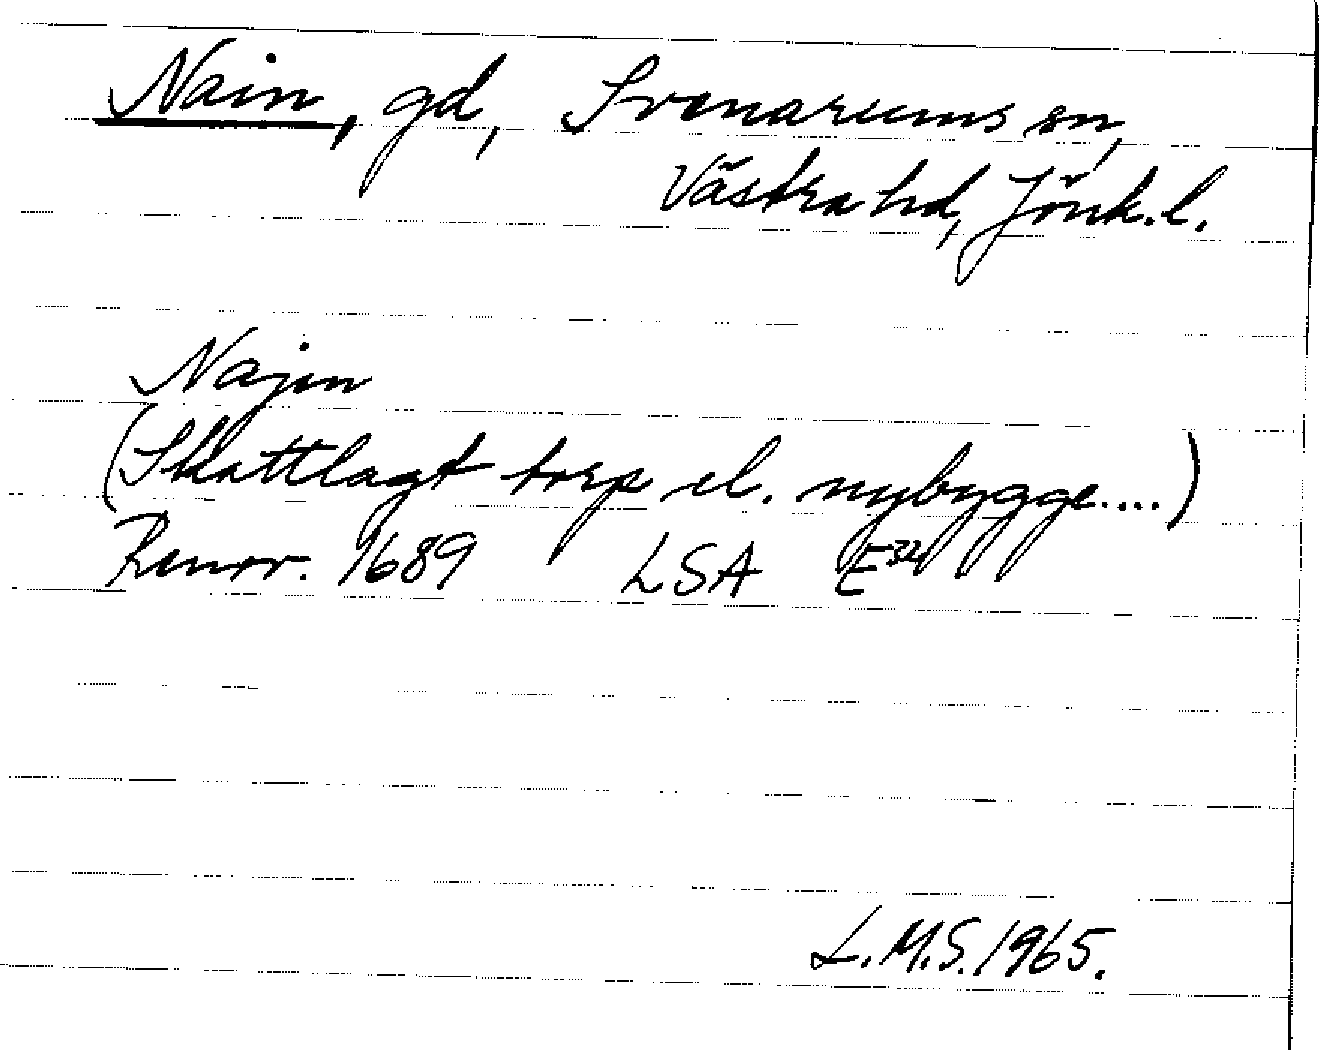 Nain, gd, Svenarums sn,
Västra hd, Jönk.l.
Najin
(Skattlagt torp el. nybygge....)
Renov. 1689 LSA E34
L.M.S. 1965.